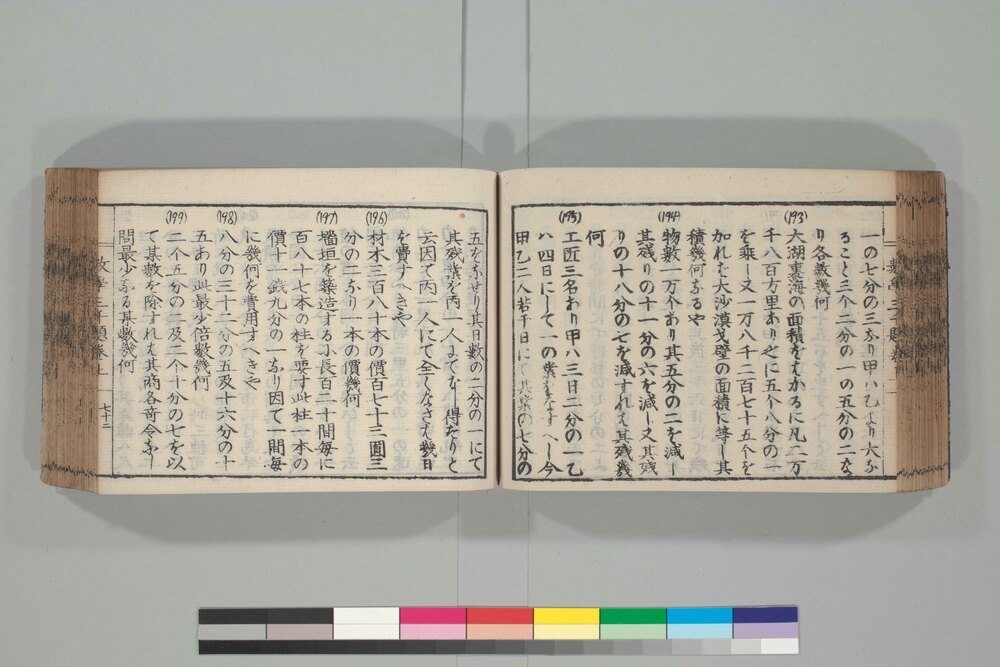 一の七分の三なり甲ハ乙より六な
ること三个二分の一の五分の二な
り各数幾何
(193)
大湖裏海の面積をはかるに凡二万
千八百方里あり之に五个八分の一
を乗し又一万八千二百七十五个を
加れハ大沙漠戈壁の面積に等し其
積幾何なるや
(194)
物数一万个あり其五分の二を減し
其残りの十一分の六を減し又其残
りの十八分の七を減すれハ其残幾
何
(195)
工匠三名あり甲ハ三日二分の一乙
ハ四日にて一の業をなすへし今
甲乙二人若干日にて其業の七分の
五をなせり其日数の二分の一にて
其残業を丙一人にてなし得たりと
云因て丙一人にて全くなさハ幾日
を費すへきや
(196)
材木三百八十本の價百七十三圓三
分の二なり一本の價幾何
(197)
墻垣を築造するに長百二十間毎に
百八十七本の柱を要す此柱一本の
價十一銭九分の一なり因て一間毎
に幾何を費用すへきや
(198)
八分の三十二分の五及十六分の十
五あり此最少倍数幾何
(199)
二个五分の 及二个十分の七を以
て某数を除すれハ其商各奇令なし
問最少なる某数幾何
七十二